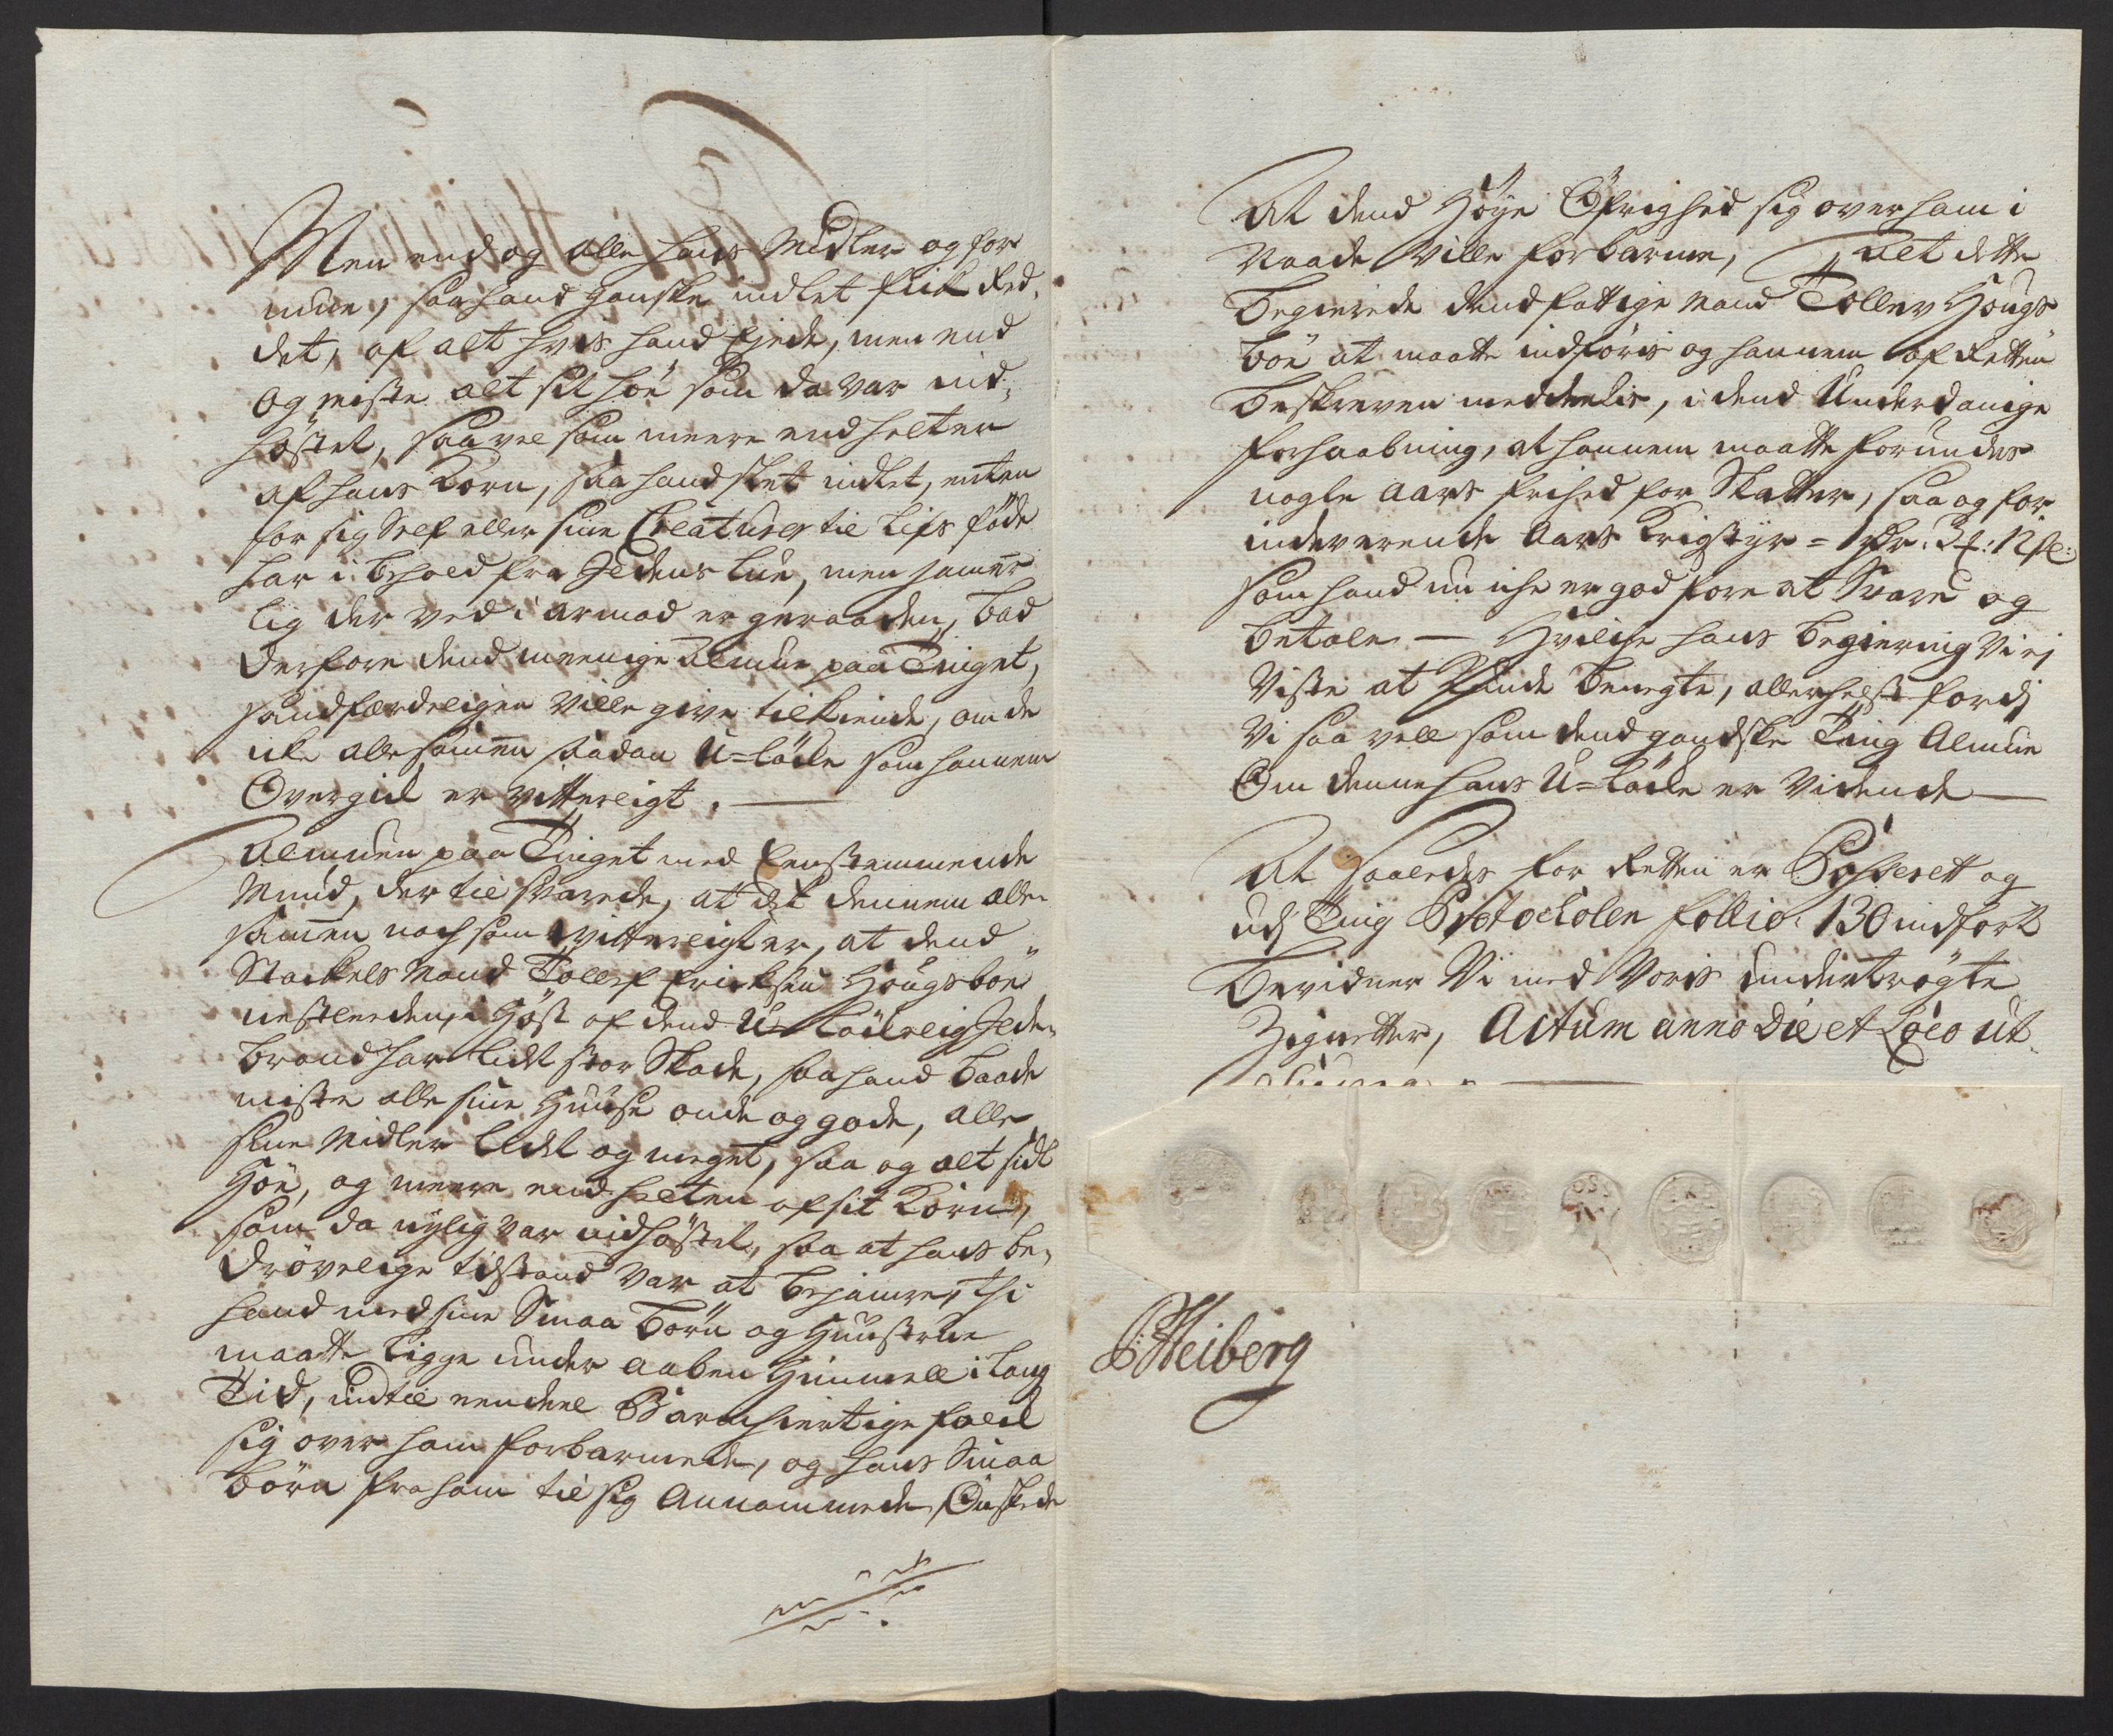 Men endog alle hans Midler og for
mue, saa hand gandske indtet fick Red,
det, af alt hvis hand Ejede, men end
og miste alt sit höe som da var ind,
höstet, saavel som meere end helten
af hans Korn, saa hand slet indtet, enten
for sig Self eller sine Creaturer til Lifs föde
har i behold fra Ildens Lue, men jammer
lig der ved i armod er geraaden, bad
derfore dend meenige Almue paa Tinget,
sandfærdeligen ville give tilkiende, om de
icke alle sammen saadan U=löcke som hannem
Overgick er vitterligt. —
Almuen paa Tinget med Eenstemmende
Mund, der til svarede, at det dennem alle
sammen noch som vitterligt er, at dend
Stackels Mand Tollef Erichsen Hougsboe
nestleeden Höst af dend U=löckelig Ilde,
brand har lidt stor Skade, saa hand baade
miste alle sine Huuse onde og gode, alle
sine Midler Lidt og meget, saa og alt sidt
Höe, og meere end helten af sit Korn,
som da nylig var indhöstet, saa at hans be,
drövelige tilstand var at bejamre, thi
hand med sine Smaa Börn og Huustrue
maatte ligge under aaben Himmell i lang
Tid, indtil eendeel Barmhiertige folck
sig over ham forbarmede, og hans Smaa
Börn fra ham til sig Annammede, Önskede
At dend Höye Öfrighed sig over ham i
Naade ville forbarme, Alt dette
begierede dend fattige Mand Tollev Hougs
boe at maatte indföris og hannem af Retten
beskreven meddeelis, i dend Underdanige
forhaabning, at hannem maatte forundes
nogle aars frihed for Skatter, saa og for
indeverende Aars Krigstyr = 1 rdr: 3 f: 12 sl:
som hand nu iche er god fore at Svare og
betale — Hvilche hans begiering Vi ej
Viste at kunde benegte, allerhelst fordj
Vi saa vell som dend gandske Ting Almue
Om denne hans U=löcke er Vidende —
At saaledes for Retten er Passeret og
udj Ting Protocholen follio: 130 indfört
bevidner Vi med Voris undertrögte
Zignetter, Actum anno Die et Loco ut
Heiberg